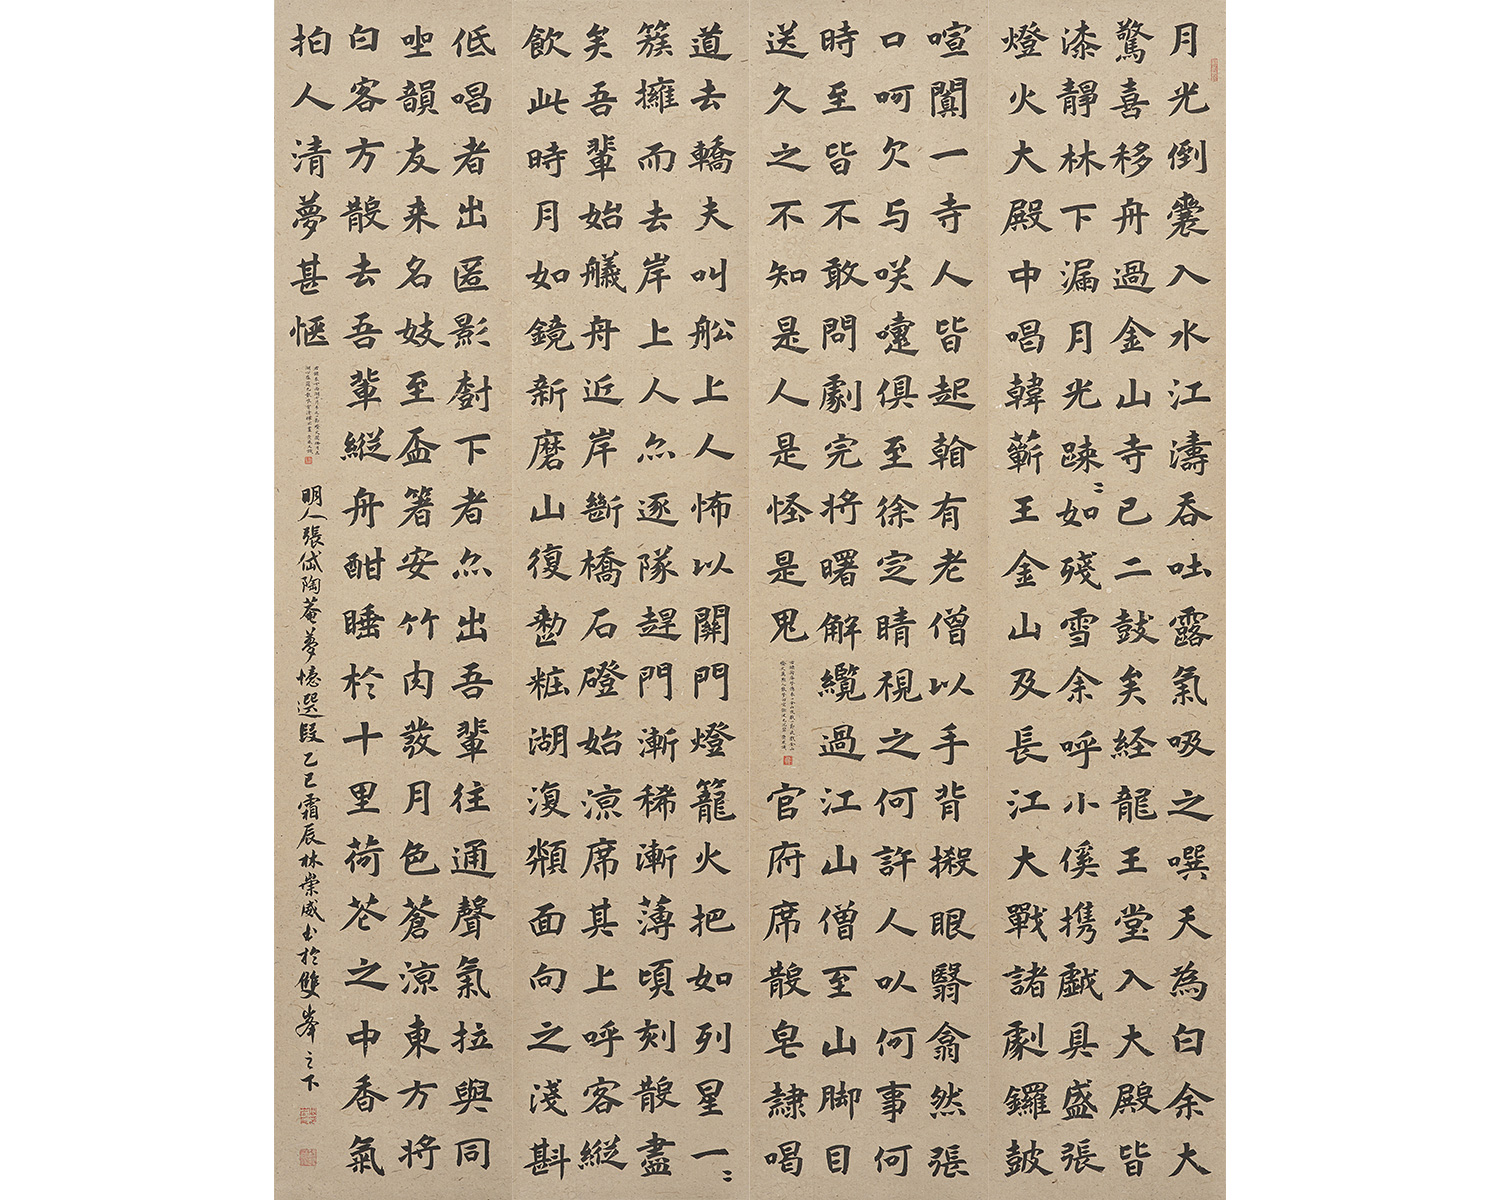 月光倒囊入水江濤吞吐露氣吸之噀天為白余大
驚喜移舟過金山寺已二鼓矣経龍王堂入大殿皆
漆靜林下漏月光踈〻如殘雪余呼小傒携戲具盛張
燈火大殿中唱韓蘄王金山及長江大戰諸劇鑼鼓
喧闐一寺人皆起翰有老僧以手背摋眼翳翕然張
口呵欠与咲嚏俱至徐定睛視之何許人以何事何
時至皆不敢問劇完將曙解纜過江山僧至山脚目
送久之不知是人是怪是鬼
官府席散皂隸唱
道去轎夫叫舩上人怖以關門燈籠火把如列星一〻
簇擁而去岸上人亦逐隊趕門漸稀漸薄頃刻散盡
矣吾輩始艤舟近岸斷橋石磴始涼席其上呼客縱
飲此時月如鏡新磨山復整粧湖復頮面向之淺斟
低唱者出匿影樹下者亦出吾輩往通聲氣拉與同
坐韻友来名妓至盃箸安竹肉發月色蒼涼東方將
白客方散去吾輩縱舟酣睡於十里荷花之中香氣
拍人清夢甚愜
明人張岱陶菴夢憶選段乙巳霜辰林崇威書於雙峯之下